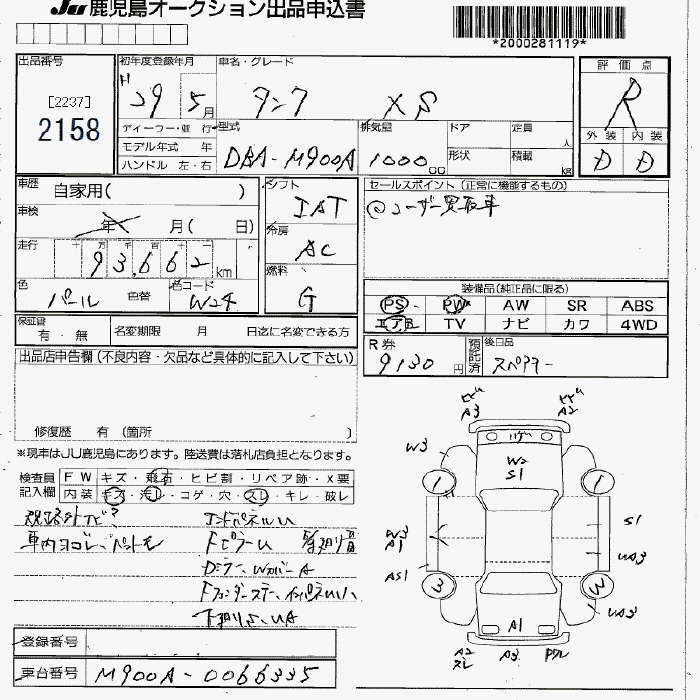 JU 鹿児島オークション出品申込書
*2000281119*
出品番号
[2237]
2158
初年度登録年月
H 29 5月
車名・グレード
タンク XS
評価点
R
外装 内装
D D
ディーラー・並行
モデル年式 年
ハンドル 左・右
型式
DBA-M900A
排気量
1000 cc
ドア
定員 人
形状
積載 kg
車歴 自家用( )
車検 年 月( 日)
走行 十 万 千 百 十 一
93,662 km
色 パール 色替
色コード W24
シフト IAT
冷房 AC
燃料 G
セールスポイント (正常に機能するもの)
◎ユーザー買取車
装備品(純正品に限る)
PS PW AW SR ABS
エアB TV ナビ カワ 4WD
保証書 有・無
名変期限 月 日迄に名変できる方
R券 9130円
預託済
後日品 スペアキー
出品店申告欄(不良内容・欠品など具体的に記入して下さい)
修復歴 有(箇所 )
※現車はJU鹿児島にあります。陸送費は落札店負担となります。
検査員記入欄
FW キズ・飛石・ヒビ割・リペア跡・X要
内装 キズ・汚レ・コゲ・穴・スレ・キレ・破レ
社外ナビ
車内ヨゴレ、ペットモ
エンドパネルU
FピラーU
下廻りS、UA
登録番号
車台番号 M900A-0066335
ヒビ A3
ヒビ A2
W3
W2
S1
1
1
W3
A1
S1
UA3
AS1
3
3
UA3
A1
A2
スレ
A3